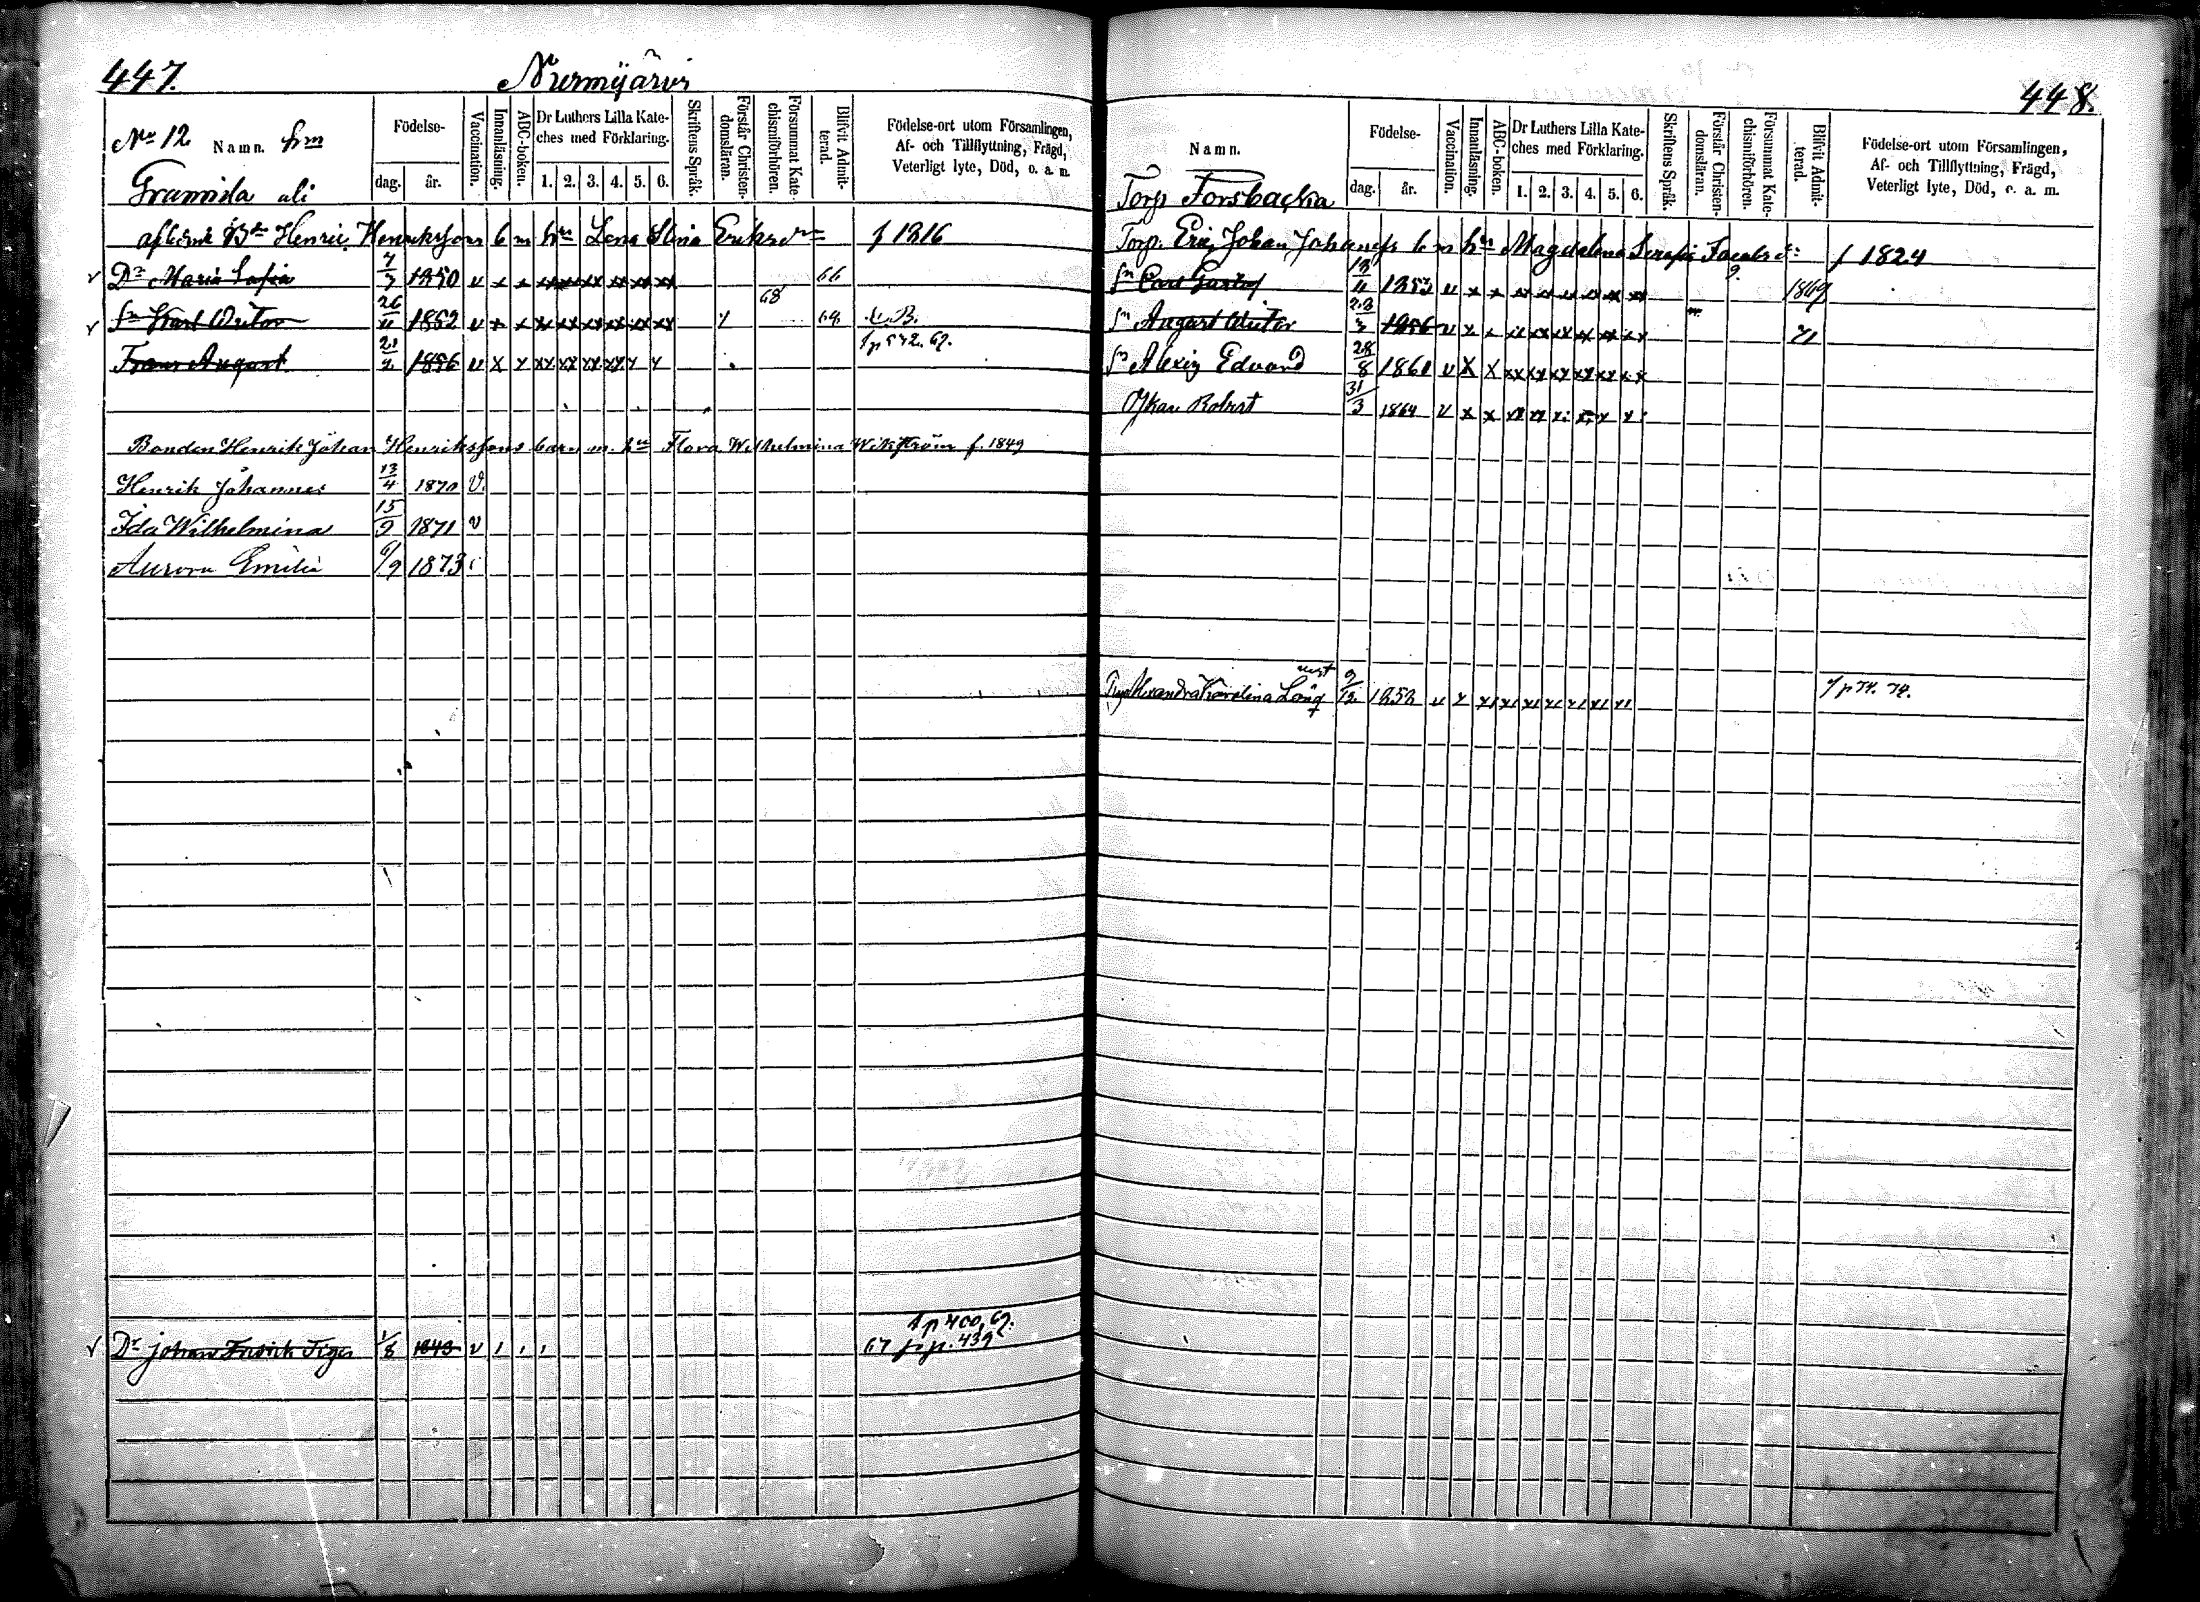 447.
Nurmijärvi
No 12 Namn. hm
Födelse-
dag. år.
Vaccination.
Innanläsning.
ABC-boken.
Dr Luthers Lilla Kate-
ches med Förklaring.
1. 2. 3. 4. 5. 6.
Skriftens Språk.
Förstår Christen-
domsläran.
Försummat Kate-
chismiförhören.
Blifvit Admit-
terad.
Födelse-ort utom Församlingen,
Af- och Tillflyttning, Frägd,
Veterligt lyte, Död, o. a. m.
Grannila ali
Henric Henrikssons b m hu Lena Stina f 1816
Dr Maria Sofia 7/3 1850 v x x xx xx xx xx xx xx 66
Sn Karl Victor 26/11 1852 v x x xx xx xx xx xx xx 68 68
Frans August 21/2 1856 v x x xx xx xx xx x x
Bonden Henrik Johan Henrikssons barn m. hu Flora Wilhelmina Wikström f. 1849
Henrik Johannes 13/4 1870 v.
Ida Wilhelmina 15/9 1871 v
Aurora Emilia 6/9 1873
1 p 400, 67.
Dr Johan Fredrik 1/8 1843 v 1 1 1 67 fr p. 439
448.
Namn.
Födelse-
dag. år.
Vaccination.
Innanläsning.
ABC-boken.
Dr Luthers Lilla Kate-
ches med Förklaring.
1. 2. 3. 4. 5. 6.
Skriftens Språk.
Förstår Christen-
domsläran.
Försummat Kate-
chismiförhören.
Blifvit Admit-
terad.
Födelse-ort utom Församlingen,
Af- och Tillflyttning, Frägd,
Veterligt lyte, Död, o. a. m.
Torp Forsbacka
Torp. Eric Johan b m hu Magdalena Serafia f 1824
Sn Carl Gustaf 1853 v x x xx xx xx xx xx xx 1869
Sn August Victor 23/3 1856 v x x xx xx xx xx xx xx 71
Sn Alexis Edvard 28/8 1861 v x x xx xx xx xx xx xx
Oskar Robert 31/3 1864 v x x xx xx
Alexandra Karolina Lönq 9/12 1852 v x